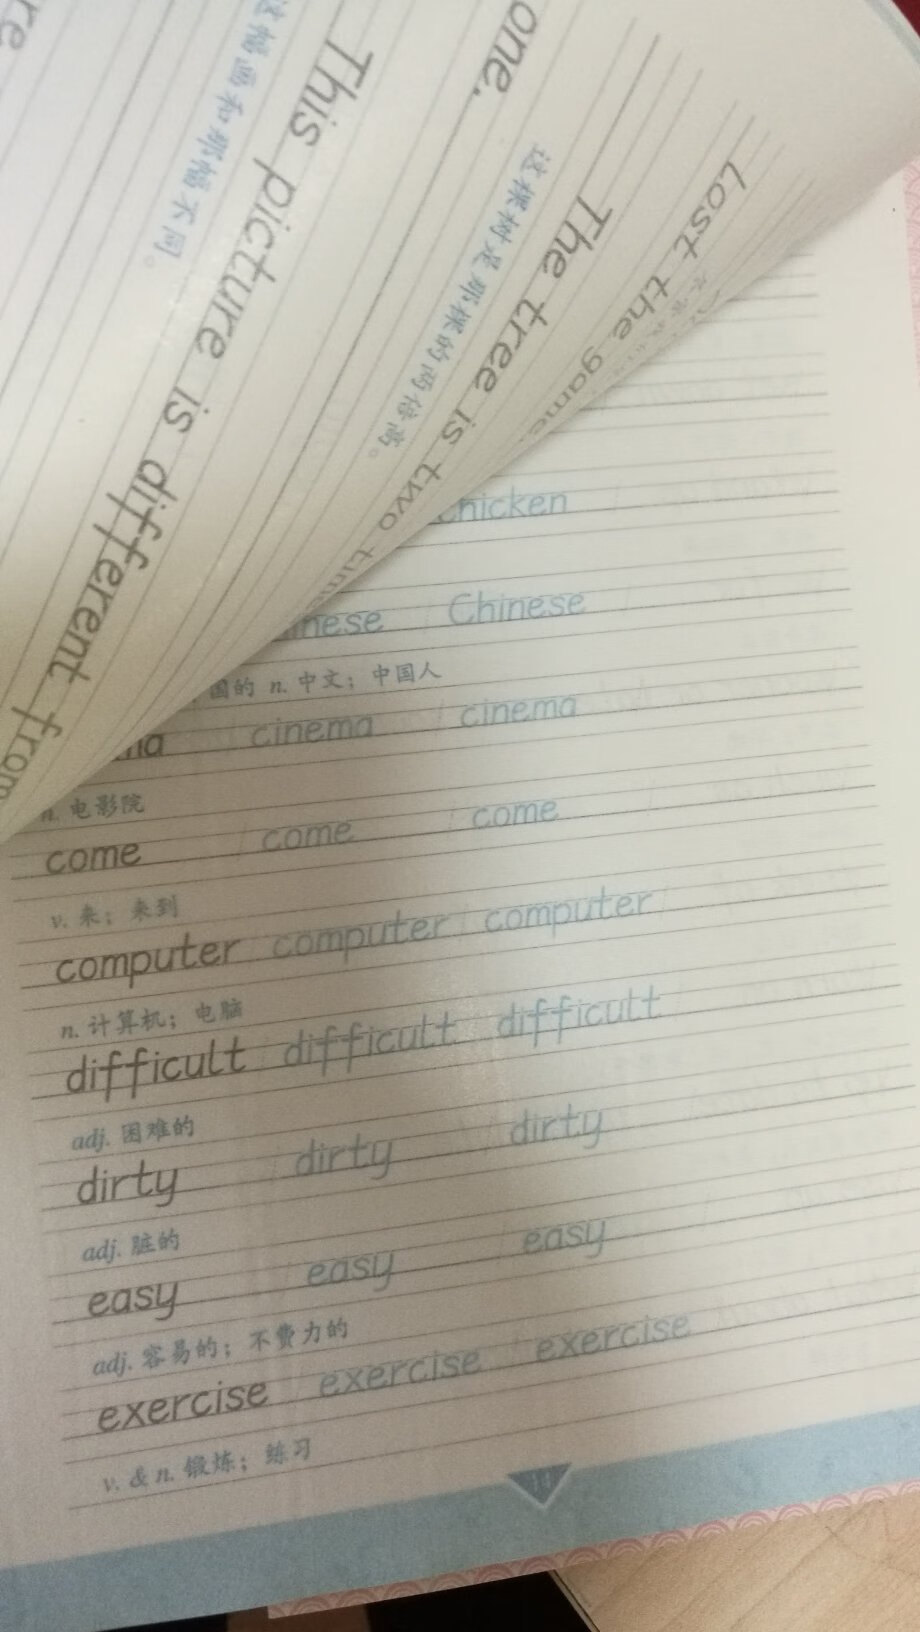 one.
这幅画和那幅不同。
This picture is different from
这棵树是那棵的两倍高。
The tree is two
Lost the game.
chicken
Chinese
国的 n. 中文；中国人
cinema cinema
n. 电影院
come come come
v. 来；来到
computer computer computer
n. 计算机；电脑
difficult difficult difficult
adj. 困难的
dirty dirty dirty
adj. 脏的
easy easy easy
adj. 容易的；不费力的
exercise exercise exercise
v. & n. 锻炼；练习
14